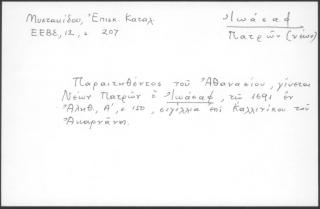 Μυστακίδου, Ἐπισκ. Καταλ.
Ἰωάσαφ
ΕΕΒΣ, 12, σ 207
Πατρῶν (νέων)
Παραιτηθέντος τοῦ Ἀθανασίου, γίνεται
Νέων Πατρῶν ὁ Ἰωάσαφ, τῷ 1691 ἐν
Ἀληθ., Α', σ 150, σιγίλλια ἐπὶ Καλλινίκου τοῦ
Ἀκαρνάνος.